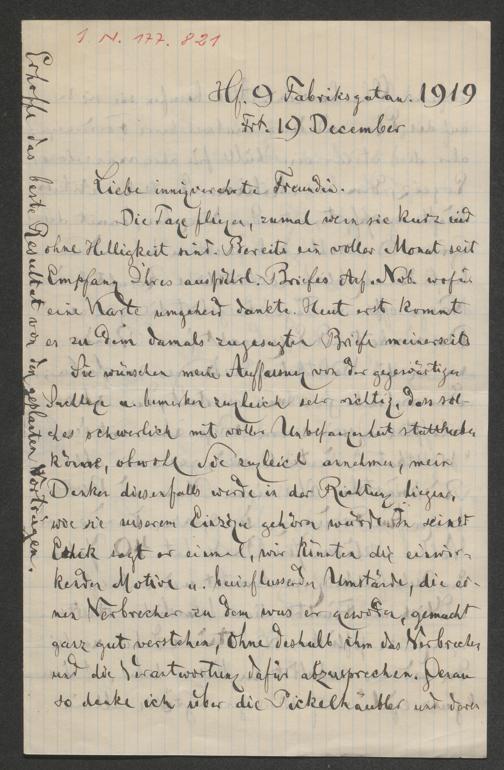 I. N. 177.821
Hf. 9 Fabriksgatan. 1919
Frt. 19 December
Liebe innigverehrte Freundin.
Die Tage fliegen, zumal wenn sie kurz und
ohne Helligkeit sind. Bereits ein voller Monat seit
Empfang Ihres ausführl. Briefes Anf. Nov. wofür
eine Karte umgehend dankte. Heut erst kommt
es zu dem damals zugesagten Briefe meinerseits
Sie wünschen meine Auffassung von der gegenwärtigen
Sachlage u. bemerken zugleich sehr richtig, dass sol-
ches schwerlich mit voller Unbefangenheit stattfinden
könne, obwohl Sie zugleich annehmen, mein
Denken diesenfalls werde in der Richtung liegen,
wie sie unserem Einzigen gehören würde. In seiner
Ethik sagt er einmal, wir könnten die einwir-
kenden Motive u. beeinflussenden Umstände, die ei-
nen Verbrecher zu dem was er geworden, gemacht
ganz gut verstehen, ohne deshalb ihm das Verbrechen
und die Verantwortung dafür abzusprechen. Genau
so denke ich über die Pickelhäubler und deren
Erhoffe das beste Resultat von den geplanten Vorträgen.